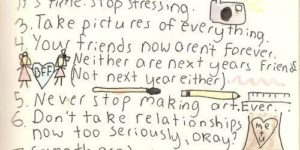 It's time. Stop stressing.
3. Take pictures of everything.
4. Your friends now aren't forever.
(Neither are next years friends
Not next year either)
BFF
5. Never stop making art. Ever.
6. Don't take relationships
now too seriously, okay?
me